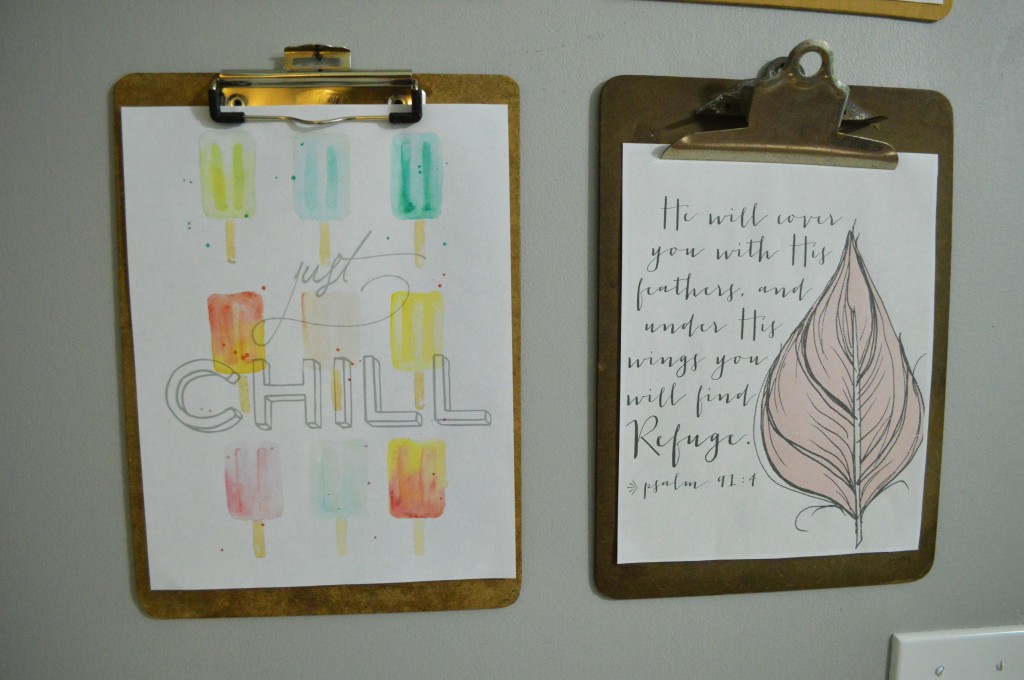 just
CHILL
He will cover
you with His
feathers, and
under His
wings you
will find
Refuge.
psalm 91:4